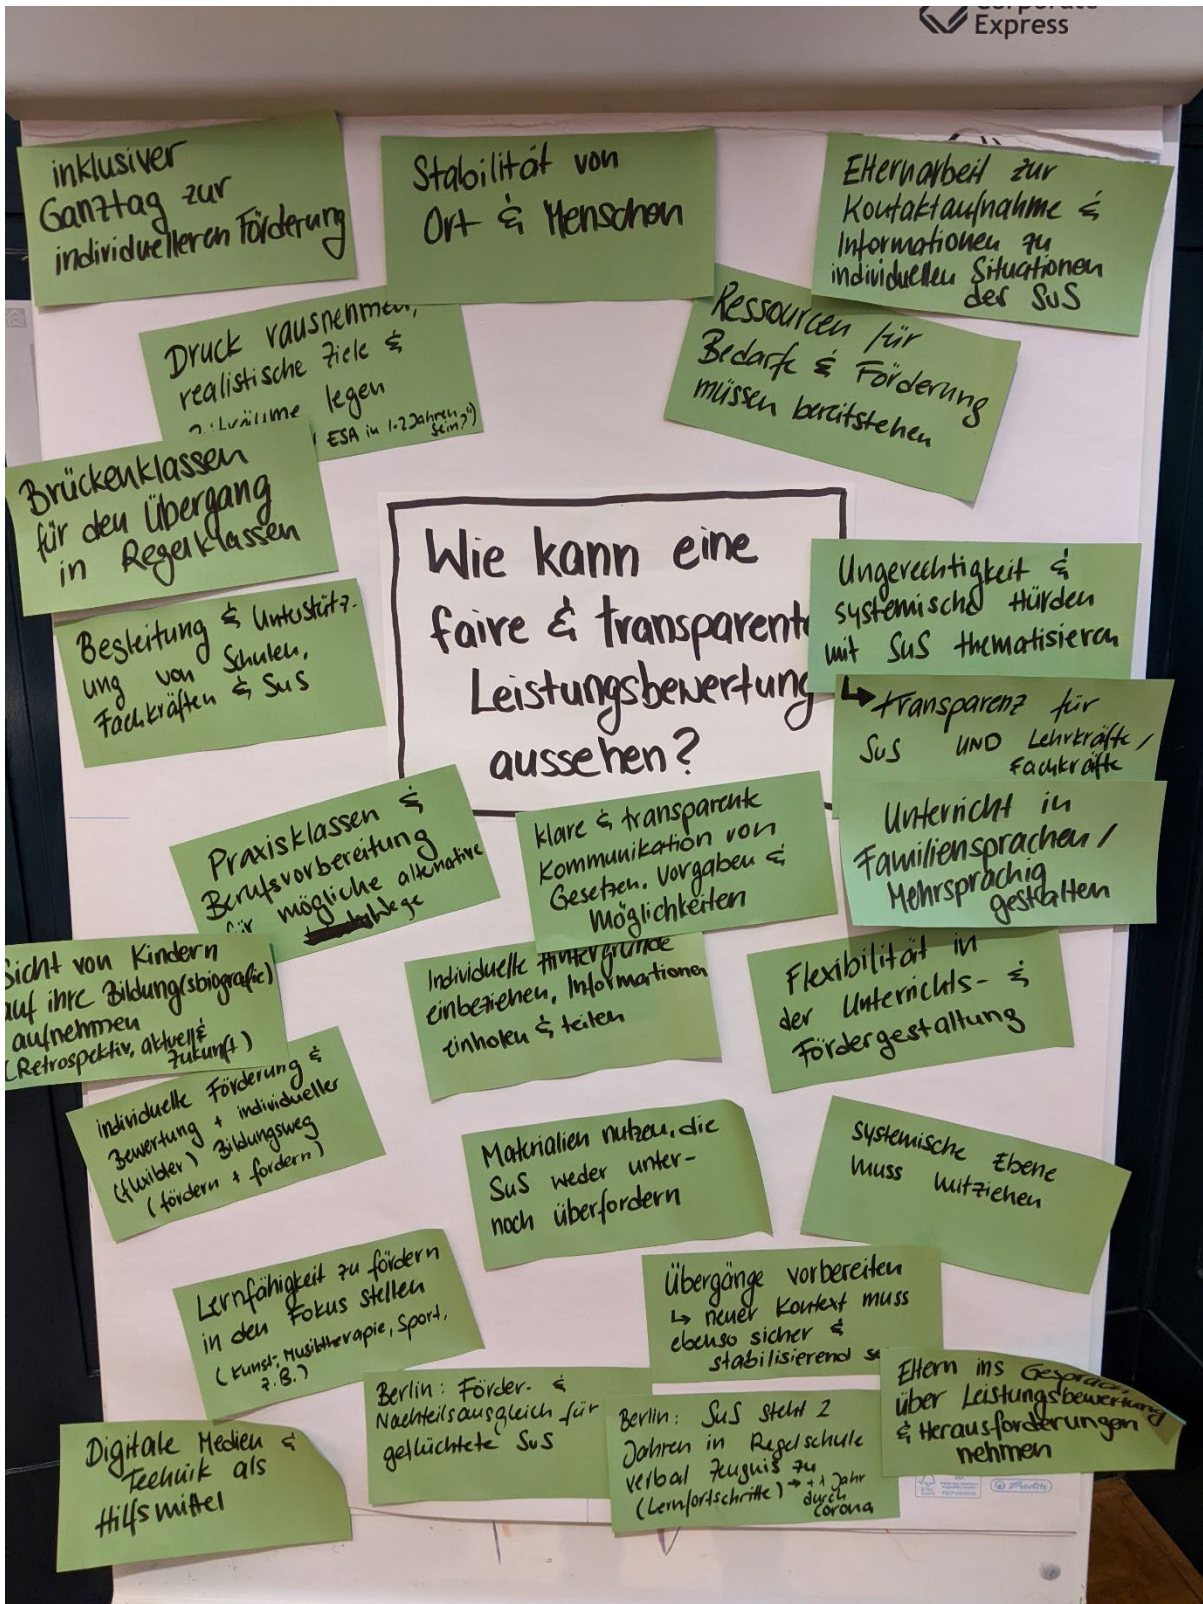 Corporate
Express
inklusiver
Ganztag zur
individuelleren Förderung
Stabilität von
Ort & Menschen
Elternarbeit zur
Kontaktaufnahme &
Informationen zu
individuellen Situationen
der SuS
Druck rausnehmen,
realistische Ziele &
legen
ESA in 1-2 Jahren
sein?")
Ressourcen für
Bedarfe & Förderung
müssen bereitstehen
Brückenklassen
für den Übergang
in Regelklassen
Wie kann eine
faire & transparente
Leistungsbewertung
aussehen?
Ungerechtigkeit &
systemische Hürden
mit SuS thematisieren
Begleitung & Unterstütz-
ung von Schulen,
Fachkräften & SuS
↳ transparenz für
SuS UND Lehrkräfte/
Fachkräfte
Praxisklassen &
Berufsvorbereitung
für mögliche alternative
Wege
klare & transparente
Kommunikation von
Gesetzen, Vorgaben &
Möglichkeiten
Unterricht in
Familiensprachen/
Mehrsprachig
gestalten
Sicht von Kindern
auf ihre Bildung(sbiografie)
aufnehmen
(Retrospektiv, aktuell &
Zukunft)
Individuelle Hintergründe
einbeziehen, Informationen
einholen & teilen
Flexibilität in
der Unterrichts- &
Fördergestaltung
individuelle Förderung &
Bewertung + individueller
(flexibler) Bildungsweg
(fördern + fordern)
Materialien nutzen, die
SuS weder unter-
noch überfordern
systemische Ebene
muss mitziehen
Lernfähigkeit zu fördern
in den Fokus stellen
(Kunst-, Musiktherapie, Sport,
z.B.)
Übergänge vorbereiten
↳ neuer Kontext muss
ebenso sicher &
stabilisierend
Eltern ins Gespräch
über Leistungsbewertung
& Herausforderungen
nehmen
Berlin: Förder- &
Nachteilsausgleich für
geflüchtete SuS
Berlin: SuS steht 2
Jahren in Regelschule
verbal Zeugnis zu
(Lernfortschritte) → + 1 Jahr
durch
Corona
Digitale Medien &
Technik als
Hilfsmittel